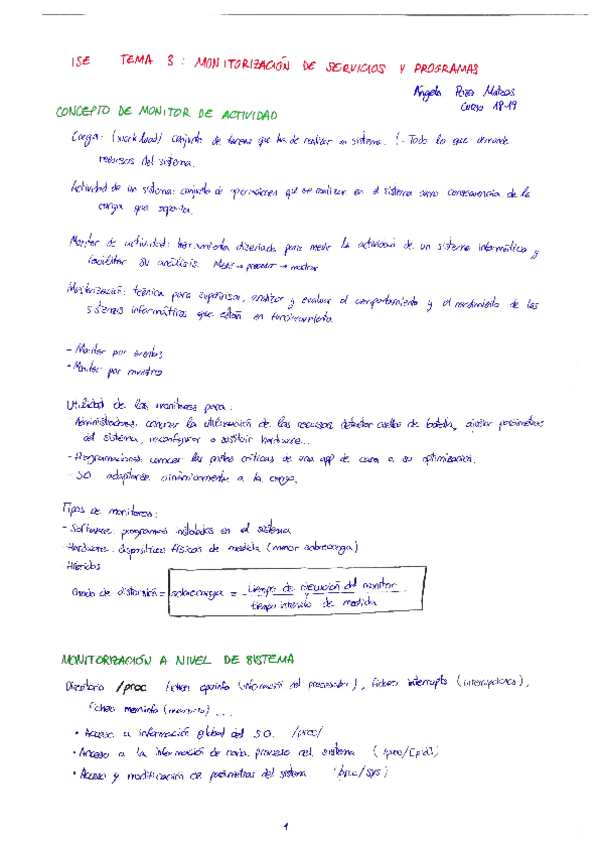 ISE TEMA 3: MONITORIZACIÓN DE SERVICIOS Y PROGRAMAS
Ángela Pérez Mateos
Curso 18-19
CONCEPTO DE MONITOR DE ACTIVIDAD
Carga: (workload) conjunto de tareas que ha de realizar un sistema. (- Todo lo que demande
recursos del sistema.
Actividad de un sistema: conjunto de operaciones que se realizan en el sistema como consecuencia de la
carga que soporta.
Monitor de actividad: herramienta diseñada para medir la actividad de un sistema informático y
facilitar su análisis. Medir → procesar → mostrar
Monitorización: técnica para supervisar, analizar y evaluar el comportamiento y el rendimiento de los
sistemas informáticos que están en funcionamiento.
- Monitor por eventos
- Monitor por muestreo
Utilidad de los monitores para:
- Administradores: conocer la utilización de los recursos, detectar cuellos de botella, ajustar parámetros
del sistema, reconfigurar o sustituir hardware...
- Programadores: conocer las partes críticas de una app de cara a su optimización.
- SO: adaptarse dinámicamente a la carga.
Tipos de monitores:
- Software: programas instalados en el sistema
- Hardware: dispositivos físicos de medida (menor sobrecarga)
- Híbridos
Grado de distorsión = sobrecarga = tiempo de ejecución del monitor
tiempo intervalo de medida
MONITORIZACIÓN A NIVEL DE SISTEMA
Directorio /proc fichero cpuinfo (información del procesador), fichero interrupts (interrupciones),
fichero meminfo (memoria) ...
• Acceso a información global del S.O. /proc/
• Acceso a la información de cada proceso del sistema (/proc/[pid])
• Acceso y modificación de parámetros del sistema /proc/sys)
1